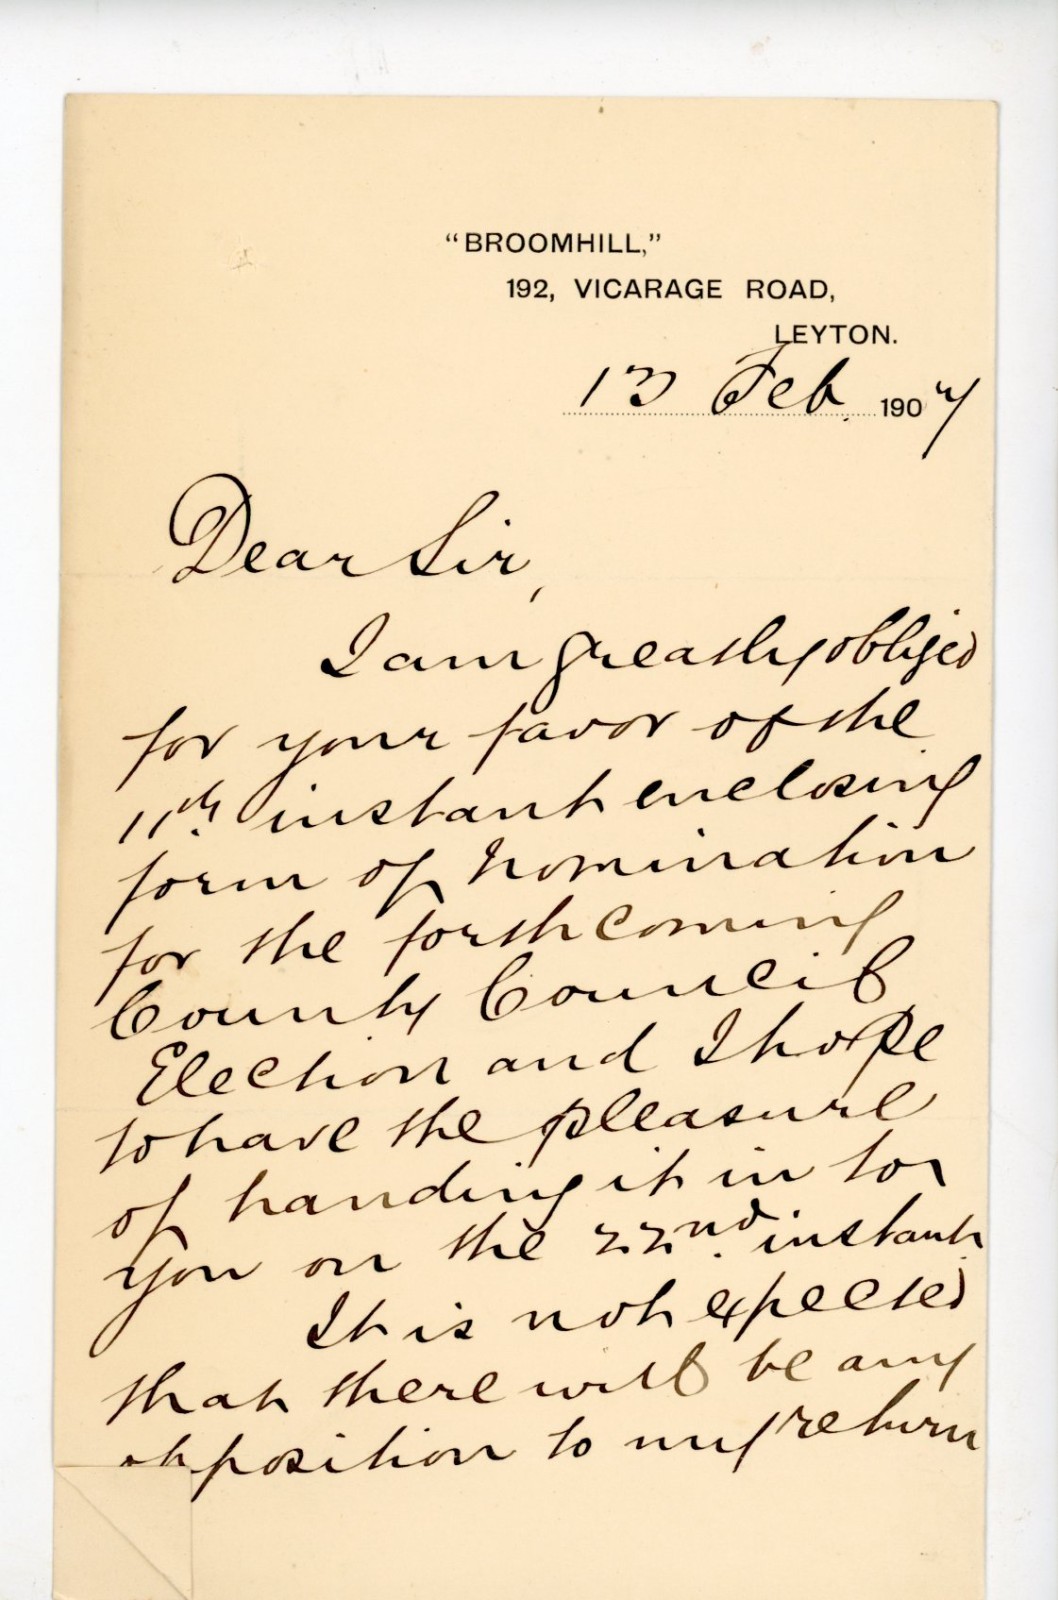 "BROOMHILL,"
192, VICARAGE ROAD,
LEYTON.
13 Feb. 1907
Dear Sir,
I am greatly obliged
for your favor of the
11th. instant enclosing
form of nomination
for the forthcoming
County Council
Election and I hope
to have the pleasure
of handing it in to
you on the 22nd. instant.
It is not expected
that there will be any
opposition to my return